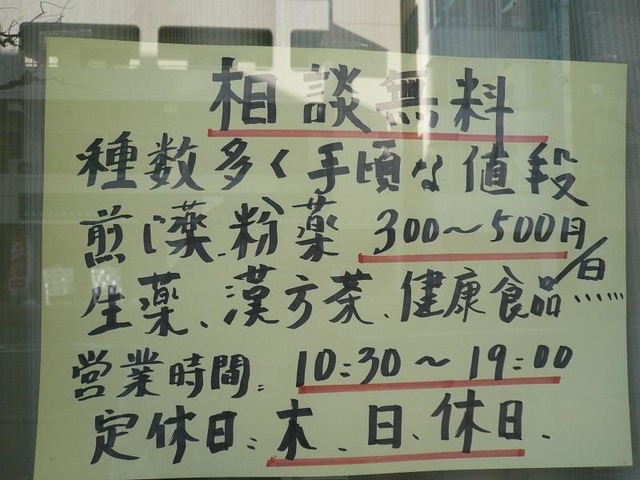 相談無料
種数多く手頃な値段
煎じ薬、粉薬 300〜500円/日
生薬、漢方茶、健康食品……
営業時間:10:30〜19:00
定休日:木、日、休日、